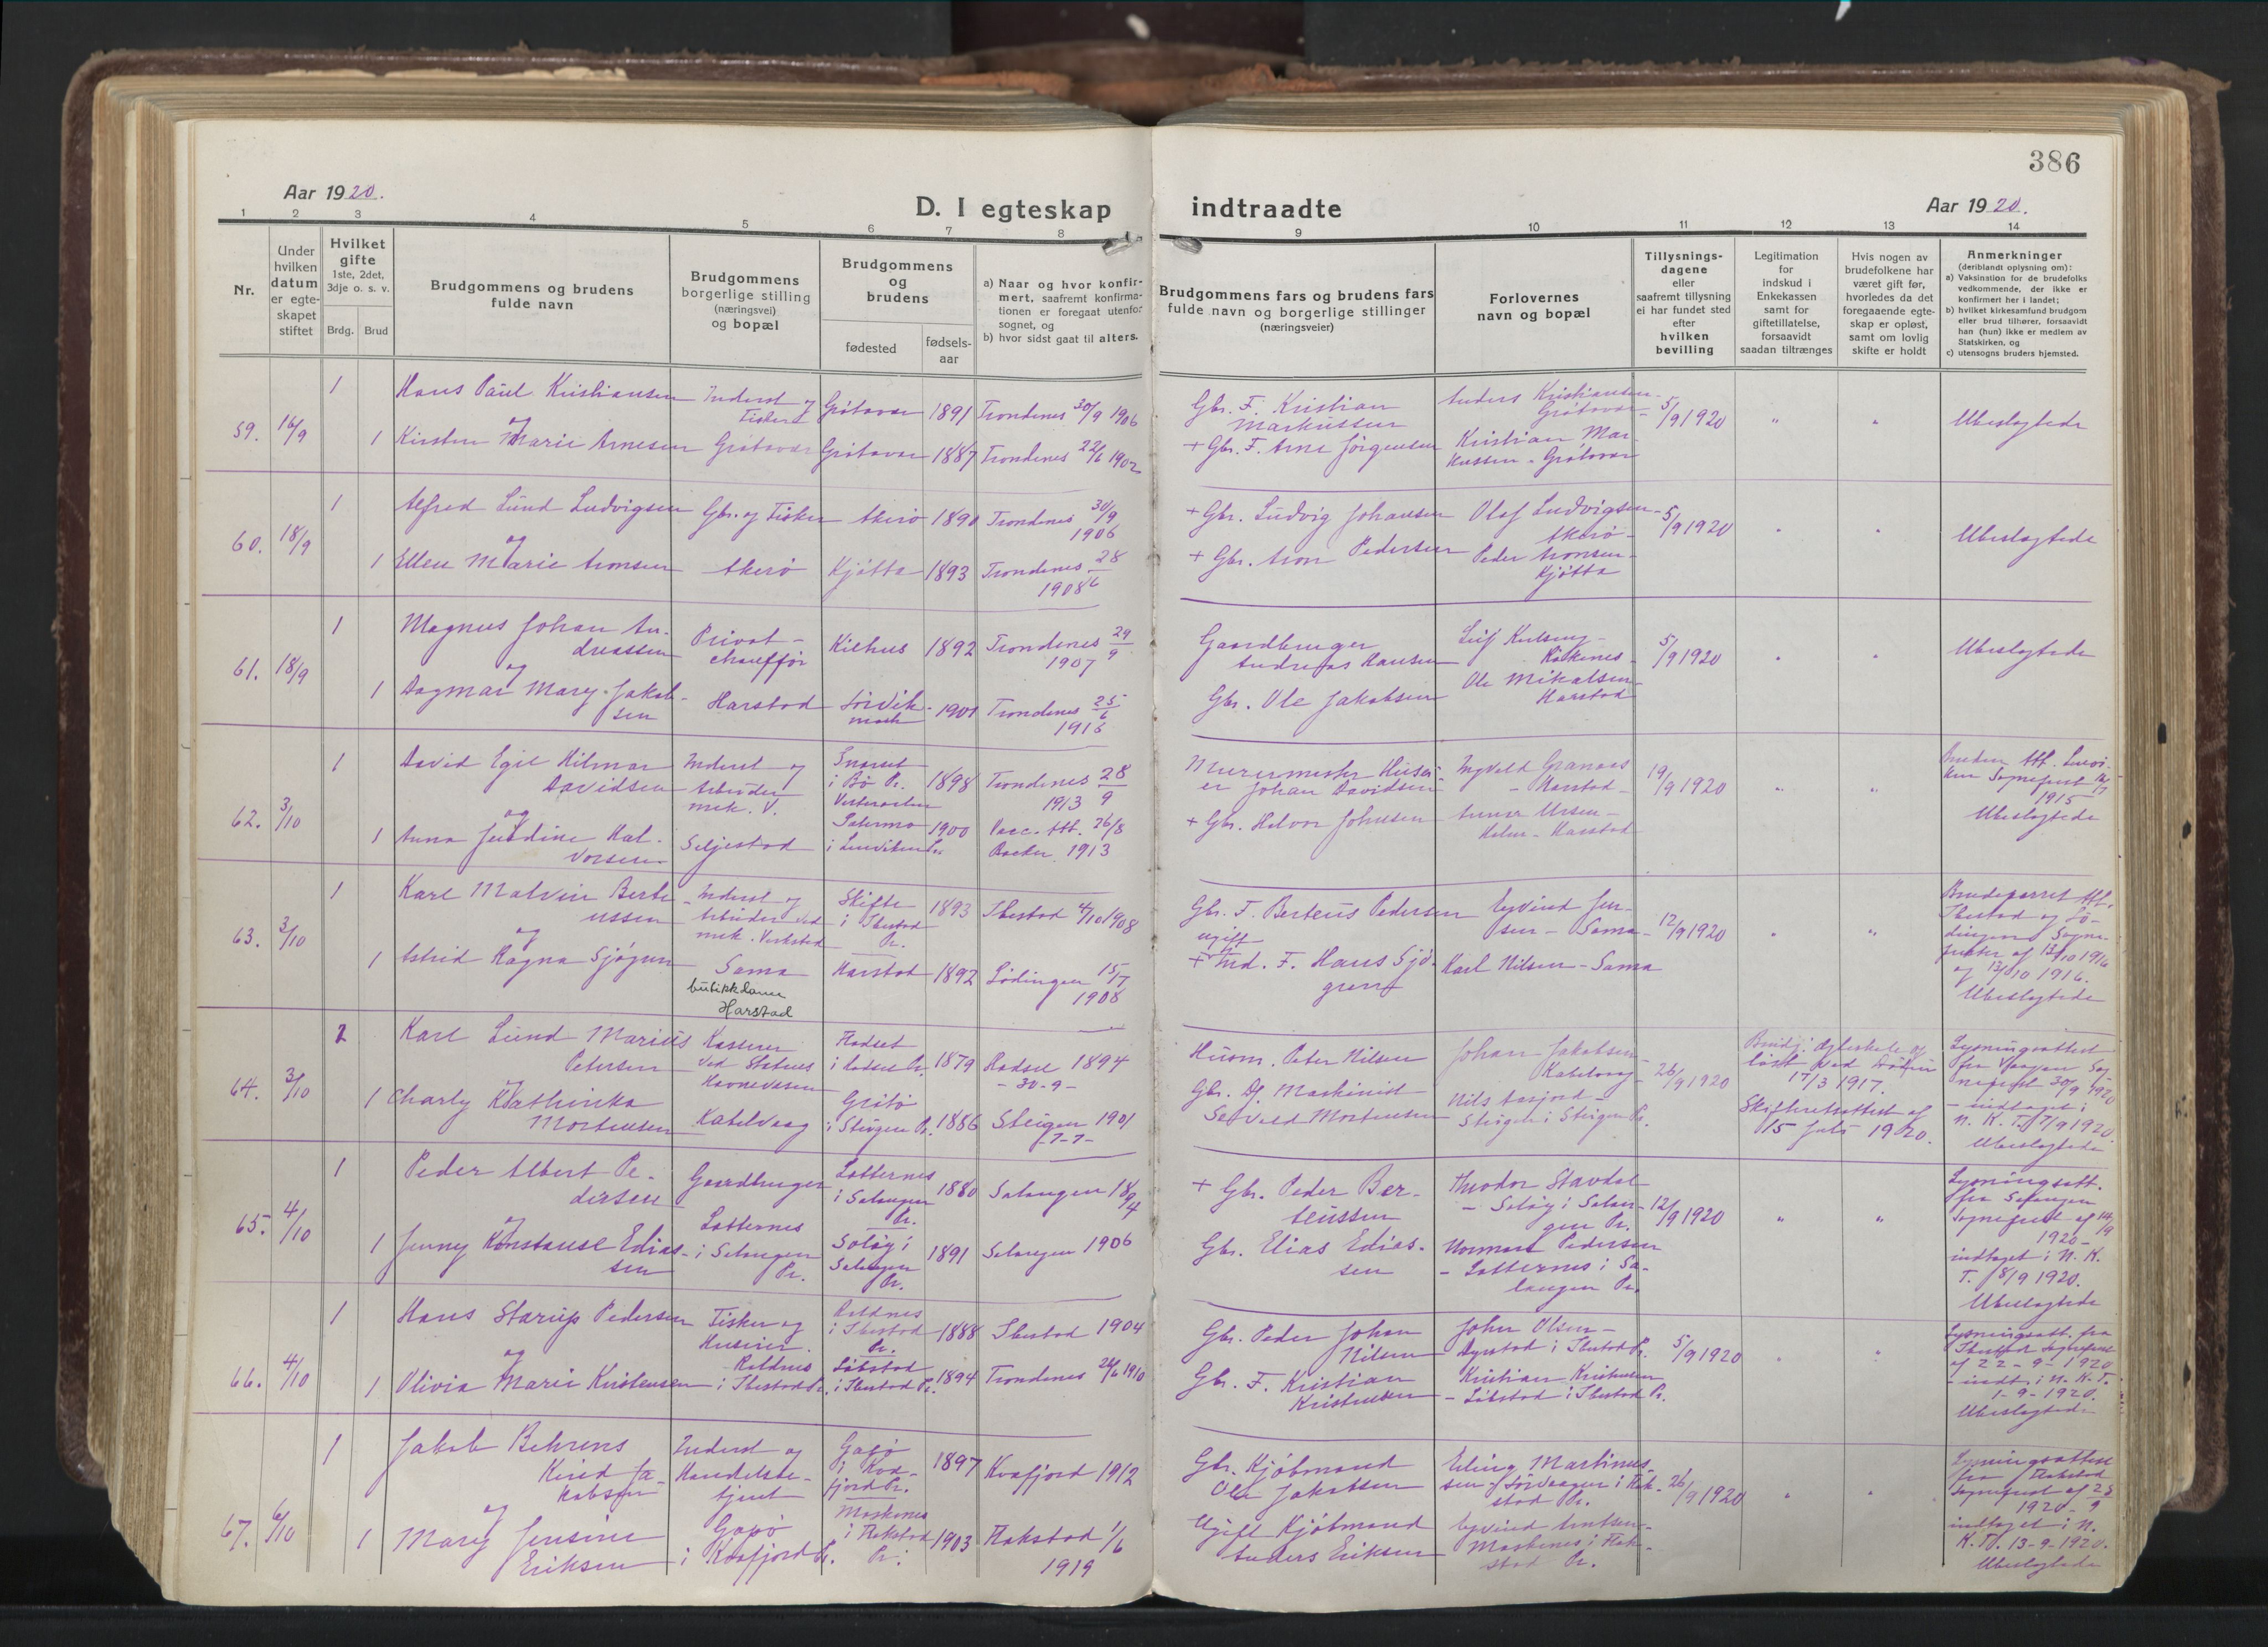 386
Aar 1920.
D. I egteskap indtraadte
Aar 1920.
1 2 3 4 5 6 7 8 9 10 11 12 13 14
Nr.
Under
hvilken
datum
er egte-
skapet
stiftet
Hvilket
gifte
1ste, 2det,
3dje o. s. v.
Brdg. Brud
Brudgommens og brudens
fulde navn
Brudgommens
borgerlige stilling
(næringsvei)
og bopæl
Brudgommens
og
brudens
fødested
fødsels-
aar
a) Naar og hvor konfir-
mert, saafremt konfirma-
tionen er foregaat utenfor
sognet, og
b) hvor sidst gaat til alters.
Brudgommens fars og brudens fars
fulde navn og borgerlige stillinger
(næringsveier)
Forlovernes
navn og bopæl
Tillysnings-
dagene
eller
saafremt tillysning
ei har fundet sted
efter
hvilken
bevilling
Legitimation
for
indskud i
Enkekassen
samt for
giftetillatelse,
forsaavidt
saadan tiltrænges
Hvis nogen av
brudefolkene har
været gift før,
hvorledes da det
foregaaende egte-
skap er opløst,
samt om lovlig
skifte er holdt
Anmerkninger
(deriblandt oplysning om):
a) Vaksination for de brudefolks
vedkommende, der ikke er
konfirmert her i landet;
b) hvilket kirkesamfund brudgom
eller brud tilhører, forsaavidt
han (hun) ikke er medlem av
Statskirken, og
c) utensogns bruders hjemsted.
59. 16/9
1
1
Hans Paul Kristiansen
og
Kirsten Marie Arnesen
Inderst og
Fisker
Grøtavær
Grøtavær 1891 Trondenes 30/9 1906
Grøtavær 1887 Trondenes 22/6 1902
Gbr. F. Kristian
Markussen
+ Gbr. F. Arne Jørgensen
Anders Kristiansen
Grøtavær
Kristian Mar-
kussen - Grøtavær
5/9 1920
Ubeslegtede
60. 18/9
1
1
Alfred Lund Ludvigsen
og
Ellen Marie Aronsen
Gbr. og Fisker
Akerø
Akerø 1890 Trondenes 30/9
1906
Kjøtta 1893 Trondenes 28/6
1908
+ Gbr. Ludvig Johansen
+ Gbr. Aron Pedersen
Olaf Ludvigsen
Akerø
Peder Aronsen
Kjøtta
5/9 1920
Ubeslegtede
61. 18/9
1
1
Magnus Johan An-
dreassen
og
Dagmar Mary Jakob-
sen
Privat-
chauffør
Harstad
Kilhus 1892 Trondenes 29/9
1907
Sørvik-
mark 1901 Trondenes 25/6
1916
Gaardbruger
Andreas Hansen
Gbr. Ole Jakobsen
Ole Mikalsen
Harstad
5/9 1920
Ubeslegtede
62. 3/10
1
1
David Egil Hilmar
Davidsen
og
Anna Jendine Hal-
vorsen
Inderst og
Arbeider
mek. V.
Seljestad
i Bø Pr.
Vesteraalen 1898 Trondenes 28/9
1913
1900 Vacc. Att. 26/8
1913
Murermester Huseier
Johan Davidsen
+ Gbr. Halvor Johnsen
Ingvald Granaas
- Harstad -
Harstad
19/9 1920
Bruden Att. Lenvi-
ken Sogneprest
1915
Ubeslegtede
63. 3/10
1
1
Karl Malvin Berte-
ussen
og
Astrid Ragna Sjøgren
Inderst og
Arbeider ved
mek. Verksted
Sama
butikkdame
Harstad
i Ibestad
Pr. 1893 Ibestad 4/10 1908
Harstad 1892 Lødingen 15/7
1908
Gbr. F. Berteus Pedersen
ugift
+ Ind. F. Hans Sjø-
gren
Eyvind Jen-
sen - Sama
Karl Nilsen - Sama
12/9 1920
Brudeparret Att.
Ibestad og Lø-
dingen Sogne-
prester af 13/10 1916
og 13/10 1916.
Ubeslegtede
64. 3/10
2
1
Karl Lund Marius
Petersen
og
Charly Kathinka
Mortensen
Kasserer
ved Statens
Havnevæsen
Kabelvaag
i Hadsel Pr. 1879 Hadsel 1894
- 30-9-
i Steigen Pr. 1886 Steigen 1901
-7-7-
Husm. Peter Nilsen
Gbr. Dj. Maskinist
Sevald Mortensen
Johan Jakobsen
Kabelvaag
Steigen i Steigen Pr.
26/9 1920
løst ved Døden
17/3 1917.
Skifteretsattest af
15 Juli 1920.
Lysningsattest
fra Vaagen Sog-
neprest 30/9 1920
- indtaget i
N. K. T. 17/9 1920.
Ubeslegtede
65. 4/10
1
1
Peder Albert Pe-
dersen
og
Jenny Konstanse Edias-
sen
Gaardbruger
i Salangen
Pr.
i Salangen
Pr. 1880 Salangen 1894
Salangen
Pr. 1891 Salangen 1906
+ Gbr. Peder Ber-
teussen
Gbr. Elias Edias-
sen
Theodor Stavdal
i Salan-
gen Pr.
Normann Pedersen
i Sa-
langen Pr.
12/9 1920
Lysningsatt.
fra Salangen
Sogneprest af 14/9
1920 -
indtaget i N. K.
T. 18/9 1920.
Ubeslegtede
66. 4/10
1
1
Hans Starup Pedersen
og
Olivia Marie Kristensen
Fisker og
Huseier
i Ibestad Pr.
i Ibestad
Pr. 1888 Ibestad 1904
i Ibestad Pr. 1894 Trondenes 26/6 1910
Gbr. Peder Johan
Nilsen
Gbr. F. Kristian
Kristensen
John Olsen -
i Ibestad Pr.
Kristian Kristensen
i Ibestad Pr.
5/9 1920
Lysningsatt. fra
Ibestad Sogneprest
af 22-9-1920
- indt. i N. K. T.
1-9-1920.
Ubeslegtede
67. 6/10
1
1
Jakob Behrens
Kvied Ja-
kobsen
og
Mary Jensine
Eriksen
Inderst og
Handelsbe-
tjent
Gapø
i Kvæfjord Pr.
Gapø
i Kvæ-
fjord Pr. 1897 Kvæfjord 1912
Moskenes
i Flakstad
Pr. 1903 Flakstad 1/6
1919
Gbr. Kjøbmand
Ole Jakobsen
Ugift Kjøbmand
Anders Eriksen
Erling Martinus-
sen Sørvaagen i Flak-
stad Pr.
Eyvind Arntsen -
Moskenes i Flak-
stad Pr.
26/9 1920
Lysningsattest
fra Flakstad
Sogneprest af 25/9
1920 -
indtaget i N.
K. T. 13-9-1920.
Ubeslegtede